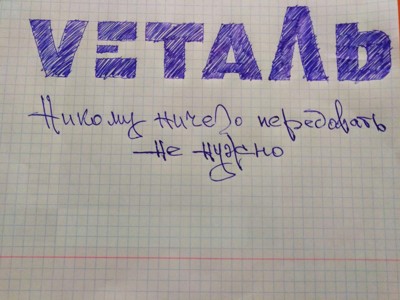 VЕТАЛЬ
Никому ничего передавать
не нужно